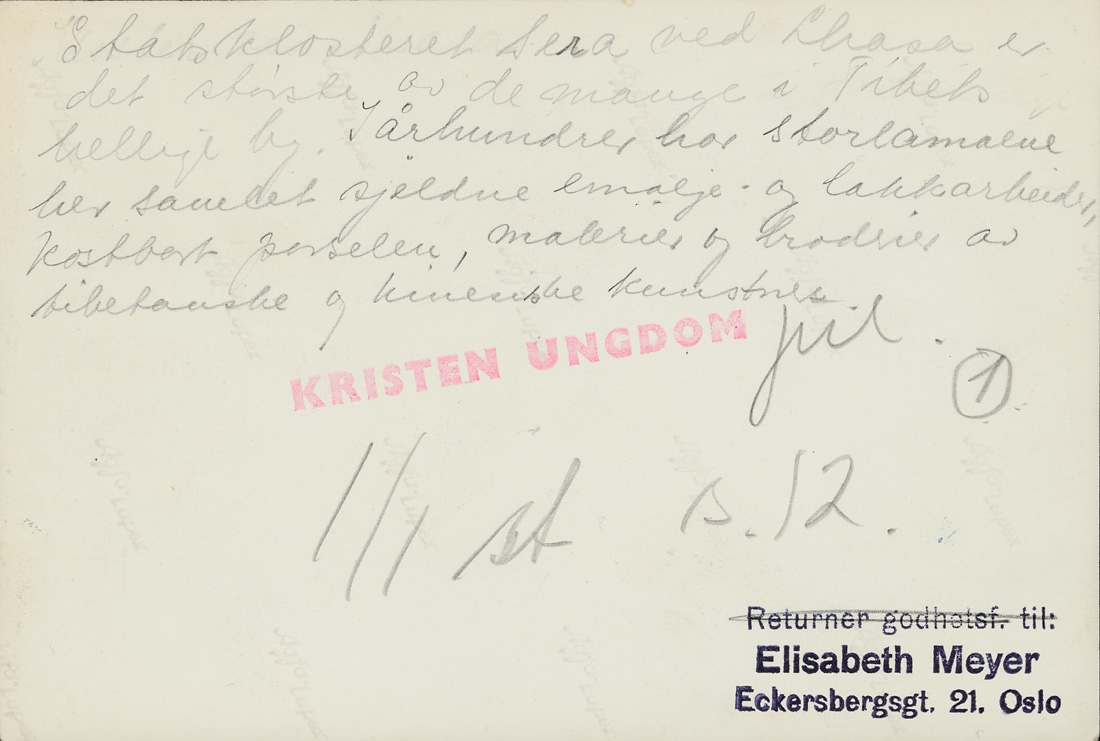 Statsklosteret Sera ved Lhasa er
det største av de mange i Tibets
hellige by. I århundrer har storlamaene
her samlet sjeldne emalje- og lakkarbeider,
kostbart porselen, malerier og broderier av
tibetanske og kinesiske kunstnere.
KRISTEN UNGDOM
jul.
1
1/1 st B. 12.
Returner godhetsf. til:
Elisabeth Meyer
Eckersbergsgt. 21. Oslo